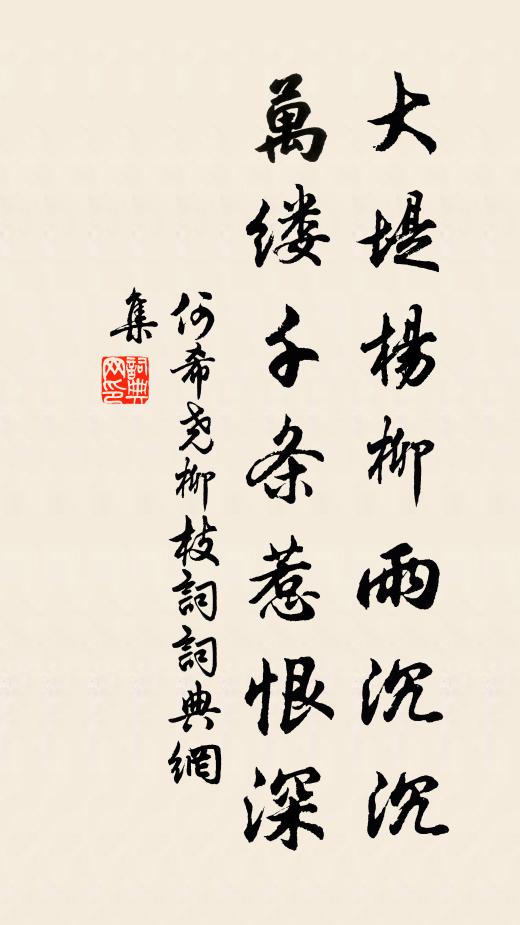 大堤楊柳雨沉沉
萬缕千条惹恨深
何希尧柳枝詞詞典網
集
詞典网印